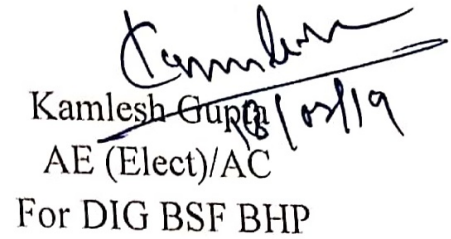 Kamlesh Gupta
AE (Elect)/AC
For DIG BSF BHP